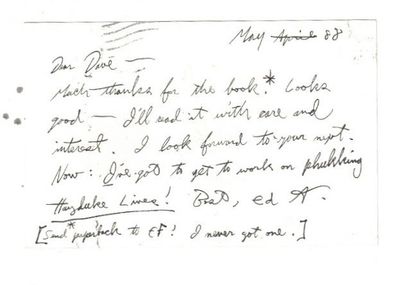 May ~~April~~ 88
Dear Dave —
Much thanks for the book.* Looks
good — I'll read it with care and
interest. I look forward to your next.
Now: I've got to get to work on phukking
Hayduke Lives! Best, Ed A.
[*Send paperback to EF! I never got one.]